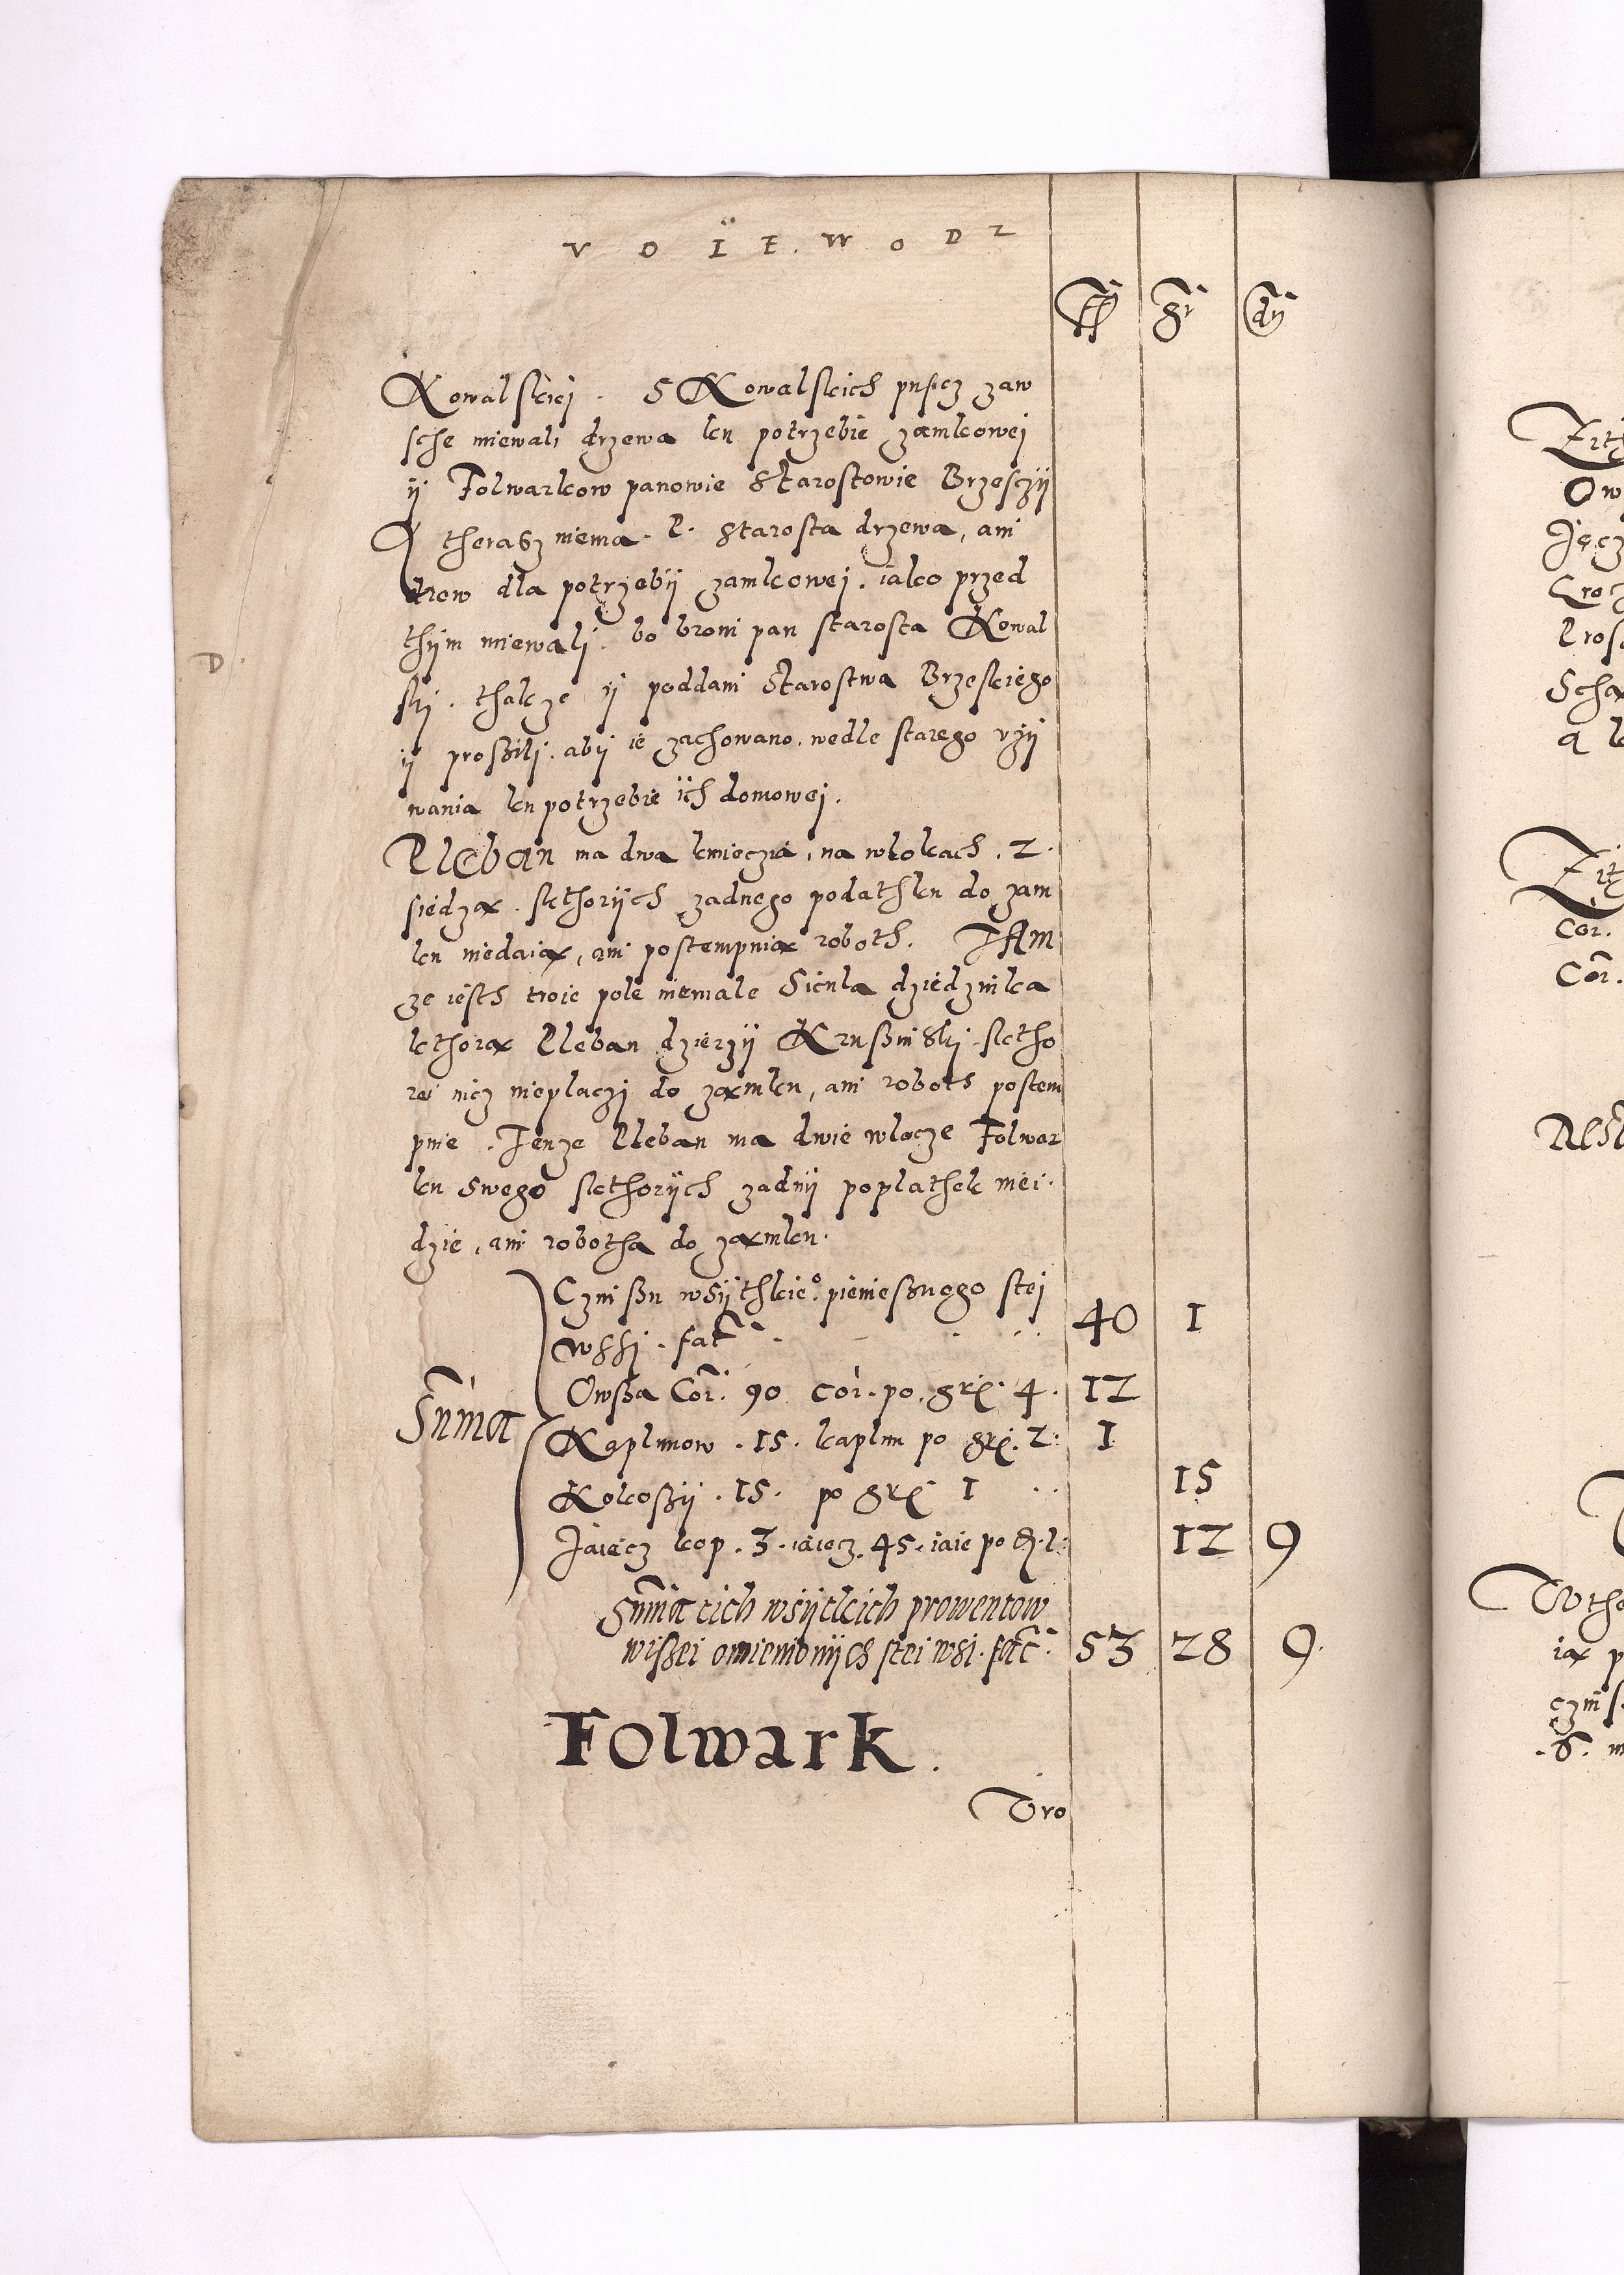 VOÏE.WODZ
fl gr dn
Kowalskiej. S Kowalskich puscz zaw
sche miewali drzewa ku potrzebie zamkowej
ÿ Folwarkow panowie Starostowie Brzesczÿ
A therasz niema. P. Starosta drzewa, ani
drow dla potrzebÿ zamkowej. iako przed
thÿm miewalj. bo broni pan starosta Kowal
skj. thakze ÿ poddani Starostwa Brzeskiego
ÿ proßilj. abÿ ie zachowano. wedle starego vzÿ
wania ku potrzebie ich domowej.
Pleban ma dwa kmieczia, na wlokach. 2.
siedzą. kthorÿch zadnego podathku do zam
ku niedaią, ani postempnią roboth. TAM
ze iesth troie pole niemale Sienla dziedzinka
kthorą Pleban dzierzÿ Krußinskj. sktho
rei nicz nieplaczj do zamku, ani roboth postem
pnie. Tenze Pleban ma dwie wlocze Folwar
ku swego skthorÿch zadnÿ poplathek niei.
dzie, ani robotha do zamku.
Czinßu wsÿthkieo. pienießnego stej
wssj. fact. 40 1
Owßa Cor. 90 cor. po. grʒ. 4. 12
Summa
Kaplunow. 15. kaplun po grʒ. 2: 1
Kokoßÿ. 15. po grʒ 1 15
Jaiecz kop. 3. iaiecz. 45. iaie po d. 1: 12 9
Summa tich wsÿtkich prowentow
wißei omienionÿch stei wsi. fact. 53 28 9.
Folwark.
Dro
D.